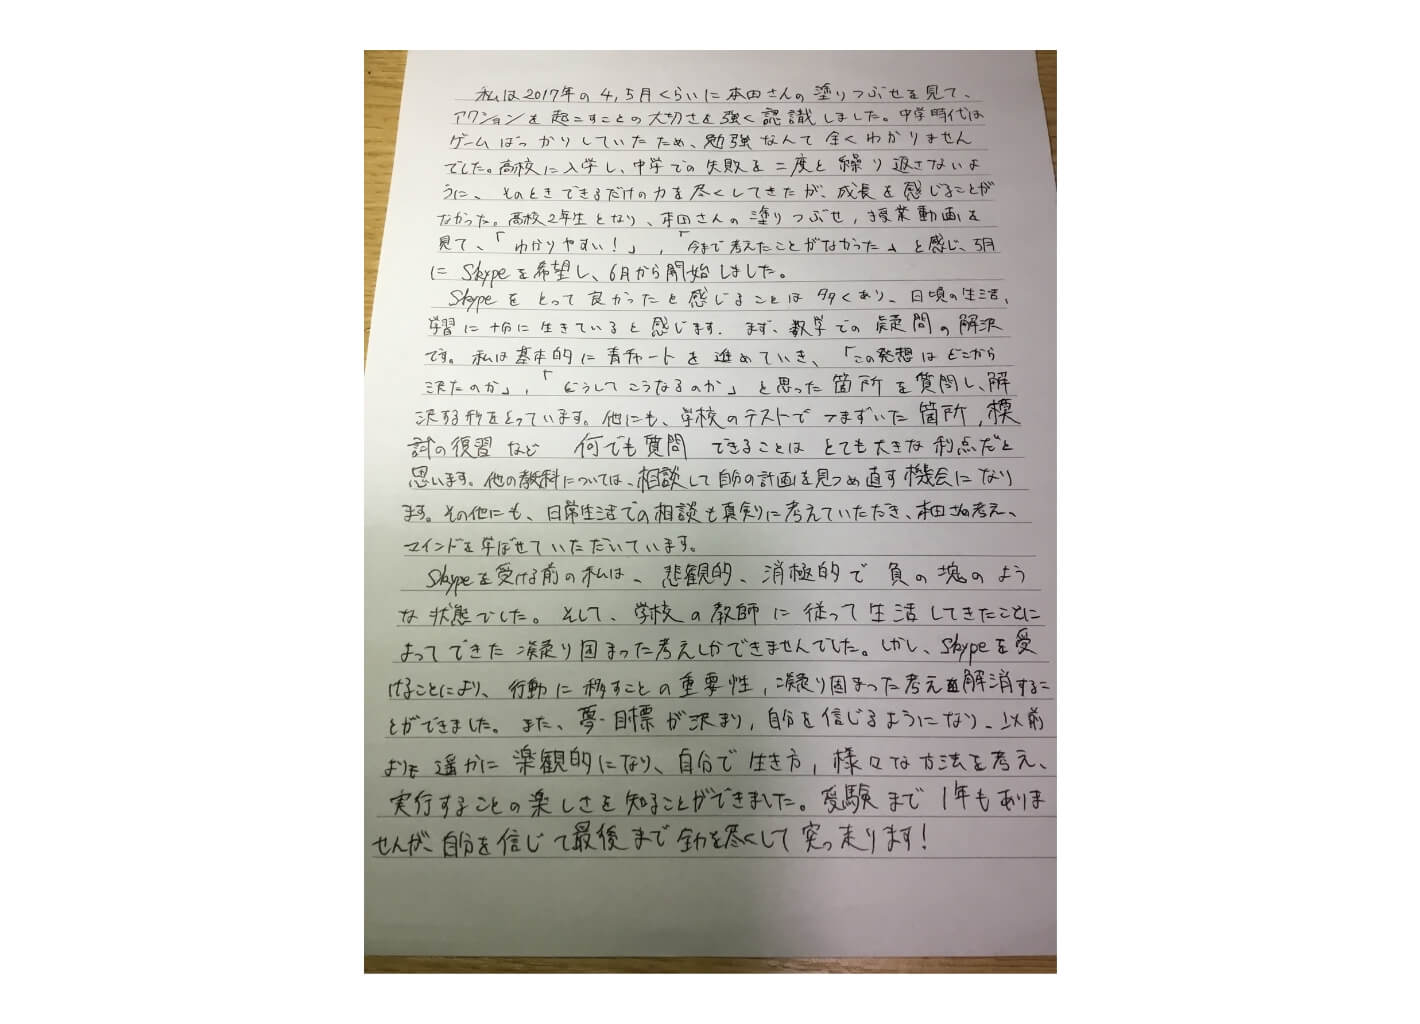 私は2017年の4,5月くらいに本田さんの塗りつぶせを見て、
アクションを起こすことの大切さを強く認識しました。中学時代は
ゲームばっかりしていたため、勉強なんて全くわかりません
でした。高校に入学し、中学での失敗を二度と繰り返さないよ
うに、そのときできるだけの力を尽くしてきたが、成長を感じることが
なかった。高校2年生となり、本田さんの塗りつぶせ,授業動画を
見て、「わかりやすい!」,「今まで考えたことがなかった」と感じ、5月
に Skypeを希望し、6月から開始しました。
Skypeをとって良かったと感じることは多くあり、日頃の生活、
学習に十分に生きていると感じます。まず、数学での疑問の解決
です。私は基本的に青チャートを進めていき、「この発想はどこから
来たのか」,「どうしてこうなるのか」と思った箇所を質問し、解
決する形をとっています。他にも、学校のテストでつまずいた箇所,模
試の復習など 何でも質問できることはとても大きな利点だと
思います。他の教科については、相談して自分の計画を見つめ直す機会になり
ます。その他にも、日常生活での相談も真剣に考えていただき、本田さんの考え、
マインドを学ばせていただいています。
Skypeを受ける前の私は、悲観的、消極的で負の塊のよう
な状態でした。そして、学校の教師に従って生活してきたことに
よってできた凝り固まった考えしかできませんでした。しかし、Skypeを受
けることにより、行動に移すことの重要性,凝り固まった考えを解消するこ
とができました。また、夢・目標が決まり,自分を信じるようになり、以前
よりも遥かに楽観的になり、自分で生き方,様々な方法を考え、
実行することの楽しさを知ることができました。受験まで1年もありま
せんが、自分を信じて最後まで全力を尽くして突っ走ります!